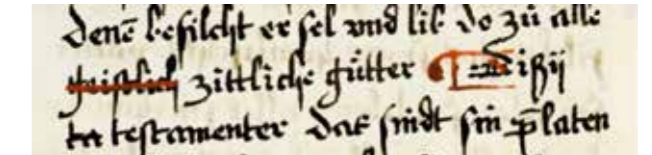 denē befilcht er sel vnd lib do zů alle
geistlich zittliche gůtter
ta testamenter das sindt sin p̄laten